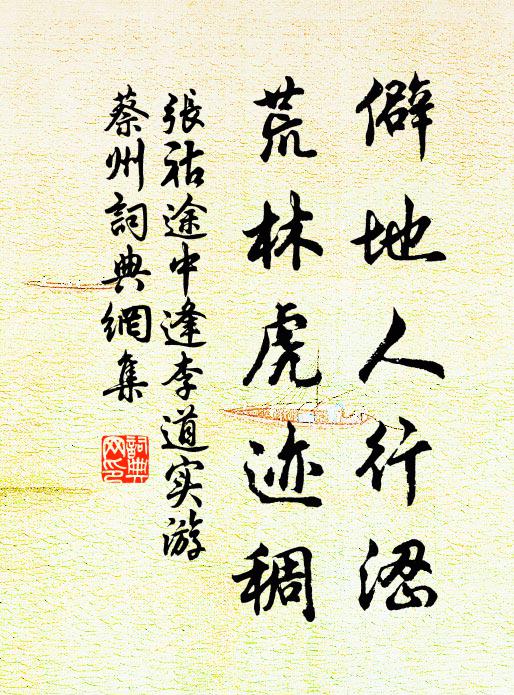 僻地人行澀
荒林虎迹稠
張祜途中逢李道实游
蔡州詞典網集
詞典网印